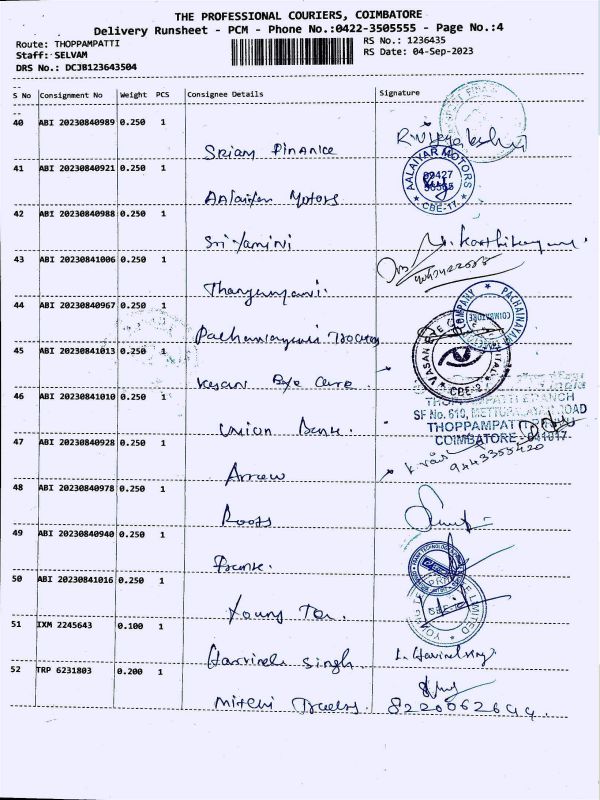 THE PROFESSIONAL COURIERS, COIMBATORE
Delivery Runsheet - PCM - Phone No.:0422-3505555 - Page No.:4
Route: THOPPAMPATTI RS No.: 1236435
Staff: SELVAM RS Date: 04-Sep-2023
DRS No.: DCJB123643504
S No Consignment No Weight PCS Consignee Details Signature
40 ABI 20230840989 0.250 1
Sriam Finance
41 ABI 20230840921 0.250 1
AALAIYAR MOTORS
CBE-17
Aalaiyar Motors
42 ABI 20230840988 0.250 1
Sri Yamini
43 ABI 20230841006 0.250 1
44 ABI 20230840967 0.250 1
COMPANY PACHAINAYAKI
COIMBATORE
45 ABI 20230841013 0.250 1
VASAN EYE
CBE-2
Vasan Eye Care
46 ABI 20230841010 0.250 1
THOPPAMPATTI BRANCH
SF No. 610, METTUPALAYAM ROAD
THOPPAMPATTI
COIMBATORE - 641017
Union Bank.
47 ABI 20230840928 0.250 1
9443355420
Arrow
48 ABI 20230840978 1
0.250
Roots
49 ABI 20230840940 0.250 1
50 ABI 20230841016 0.250 1
LIMITED
Young
51 IXM 2245643 0.100 1
Harvinder Singh
52 TRP 6231803 0.200 1
Mithi Traders. 8220062699.